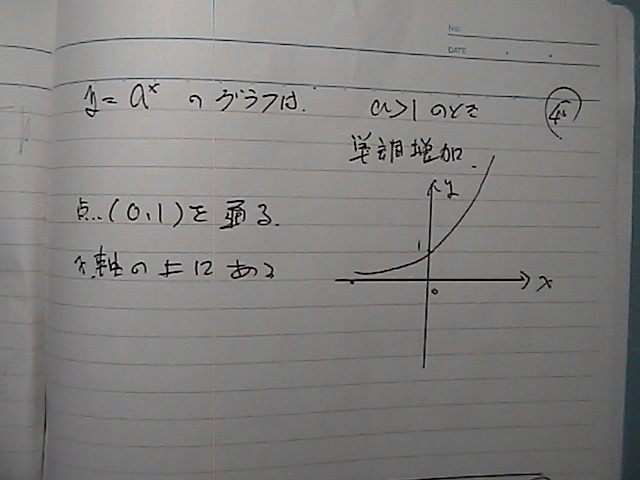 No.
DATE
y = a^x のグラフは. a>1 のとき
単調増加.
点..(0,1)を通る.
x軸の上にある
y
1
0
x